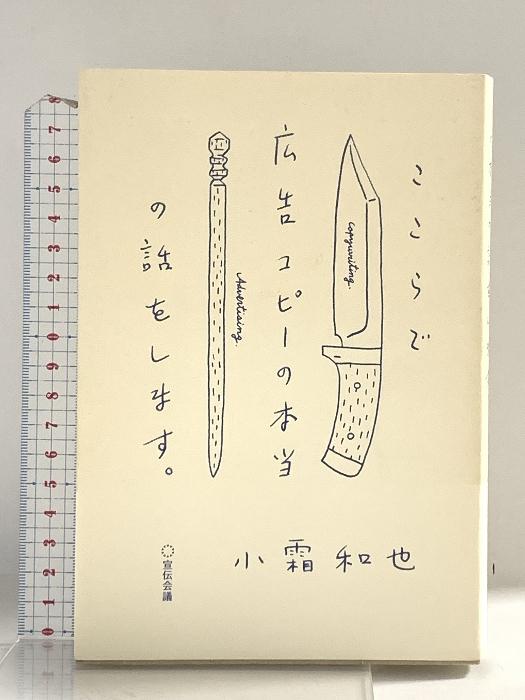 ここらで
広告コピーの本当
の話をします。
Copywriting.
Advertising.
小霜和也
宣伝会議
8
7
6
5
4
3
2
1
0
9
8
7
6
5
4
3
2
1
0